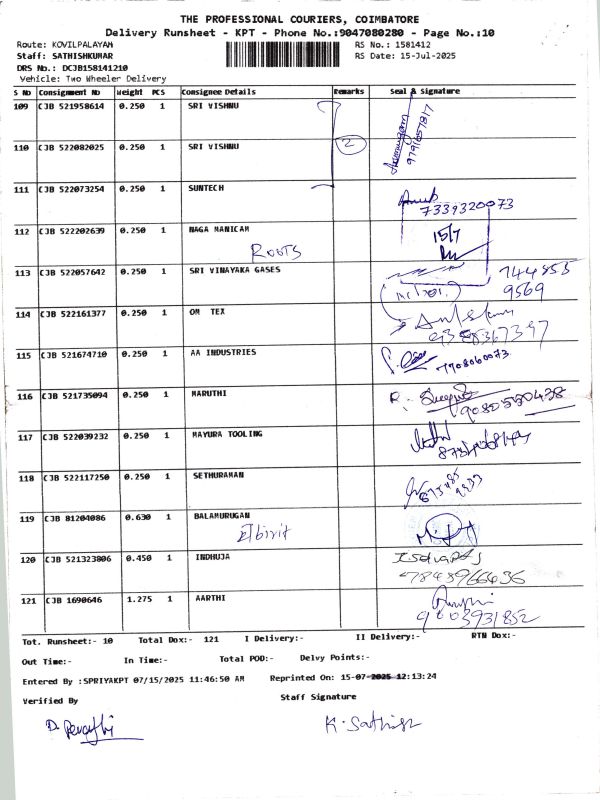 THE PROFESSIONAL COURIERS, COIMBATORE
Delivery Runsheet - KPT - Phone No.:9047080280 - Page No.:10
Route: KOVILPALAYAM RS No.: 1581412
Staff: SATHISHKUMAR RS Date: 15-Jul-2025
DRS No.: DCJB158141210
Vehicle: Two Wheeler Delivery
S No Consignment No Weight PCS Consignee Details Remarks Seal & Signature
109 CJB 521958614 0.250 1 SRI VISHNU
9791657817
110 CJB 522082025 0.250 1 SRI VISHNU 2
111 CJB 522073254 0.250 1 SUNTECH
7339320073
112 CJB 522202639 0.250 1 NAGA MANICAM 15/7
ROOTS
113 CJB 522057642 0.250 1 SRI VINAYAKA GASES 744855
9569
114 CJB 522161377 0.250 1 OM TEX
115 CJB 521674710 0.250 1 AA INDUSTRIES 7708060073
116 CJB 521735094 0.250 1 MARUTHI
9080550438
117 CJB 522039232 0.250 1 MAYURA TOOLING
118 CJB 522117250 0.250 1 SETHURAMAN
119 CJB 81204086 0.630 1 BALAMURUGAN
120 CJB 521323806 0.450 1 INDHUJA
121 CJB 1690646 1.275 1 AARTHI
9003931852
Tot. Runsheet:- 10 Total Dox:- 121 I Delivery:- II Delivery:- RTN Dox:-
Out Time:- In Time:- Total POD:- Delvy Points:-
Entered By :SPRIYAKPT 07/15/2025 11:46:50 AM Reprinted On: 15-07-2025 12:13:24
Verified By Staff Signature
K. Sathish